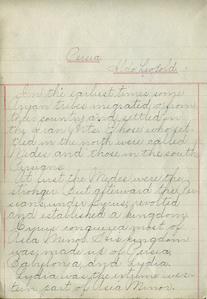 Persia
In the earliest times some
Aryan tribes migrated from
their country and settled in
the Iran. Those who set-
tled in the north were called
Medes and those in the south
At first the Medes were the
stronger but afterward the Per-
sians, under Cyrus, revolted
and established a kingdom.
Cyrus conquered most of
Asia Minor. His kingdom
was made up of Persia,
Babylonia, and Lydia.
Lydia was the extreme wes-
tern part of Asia Minor.